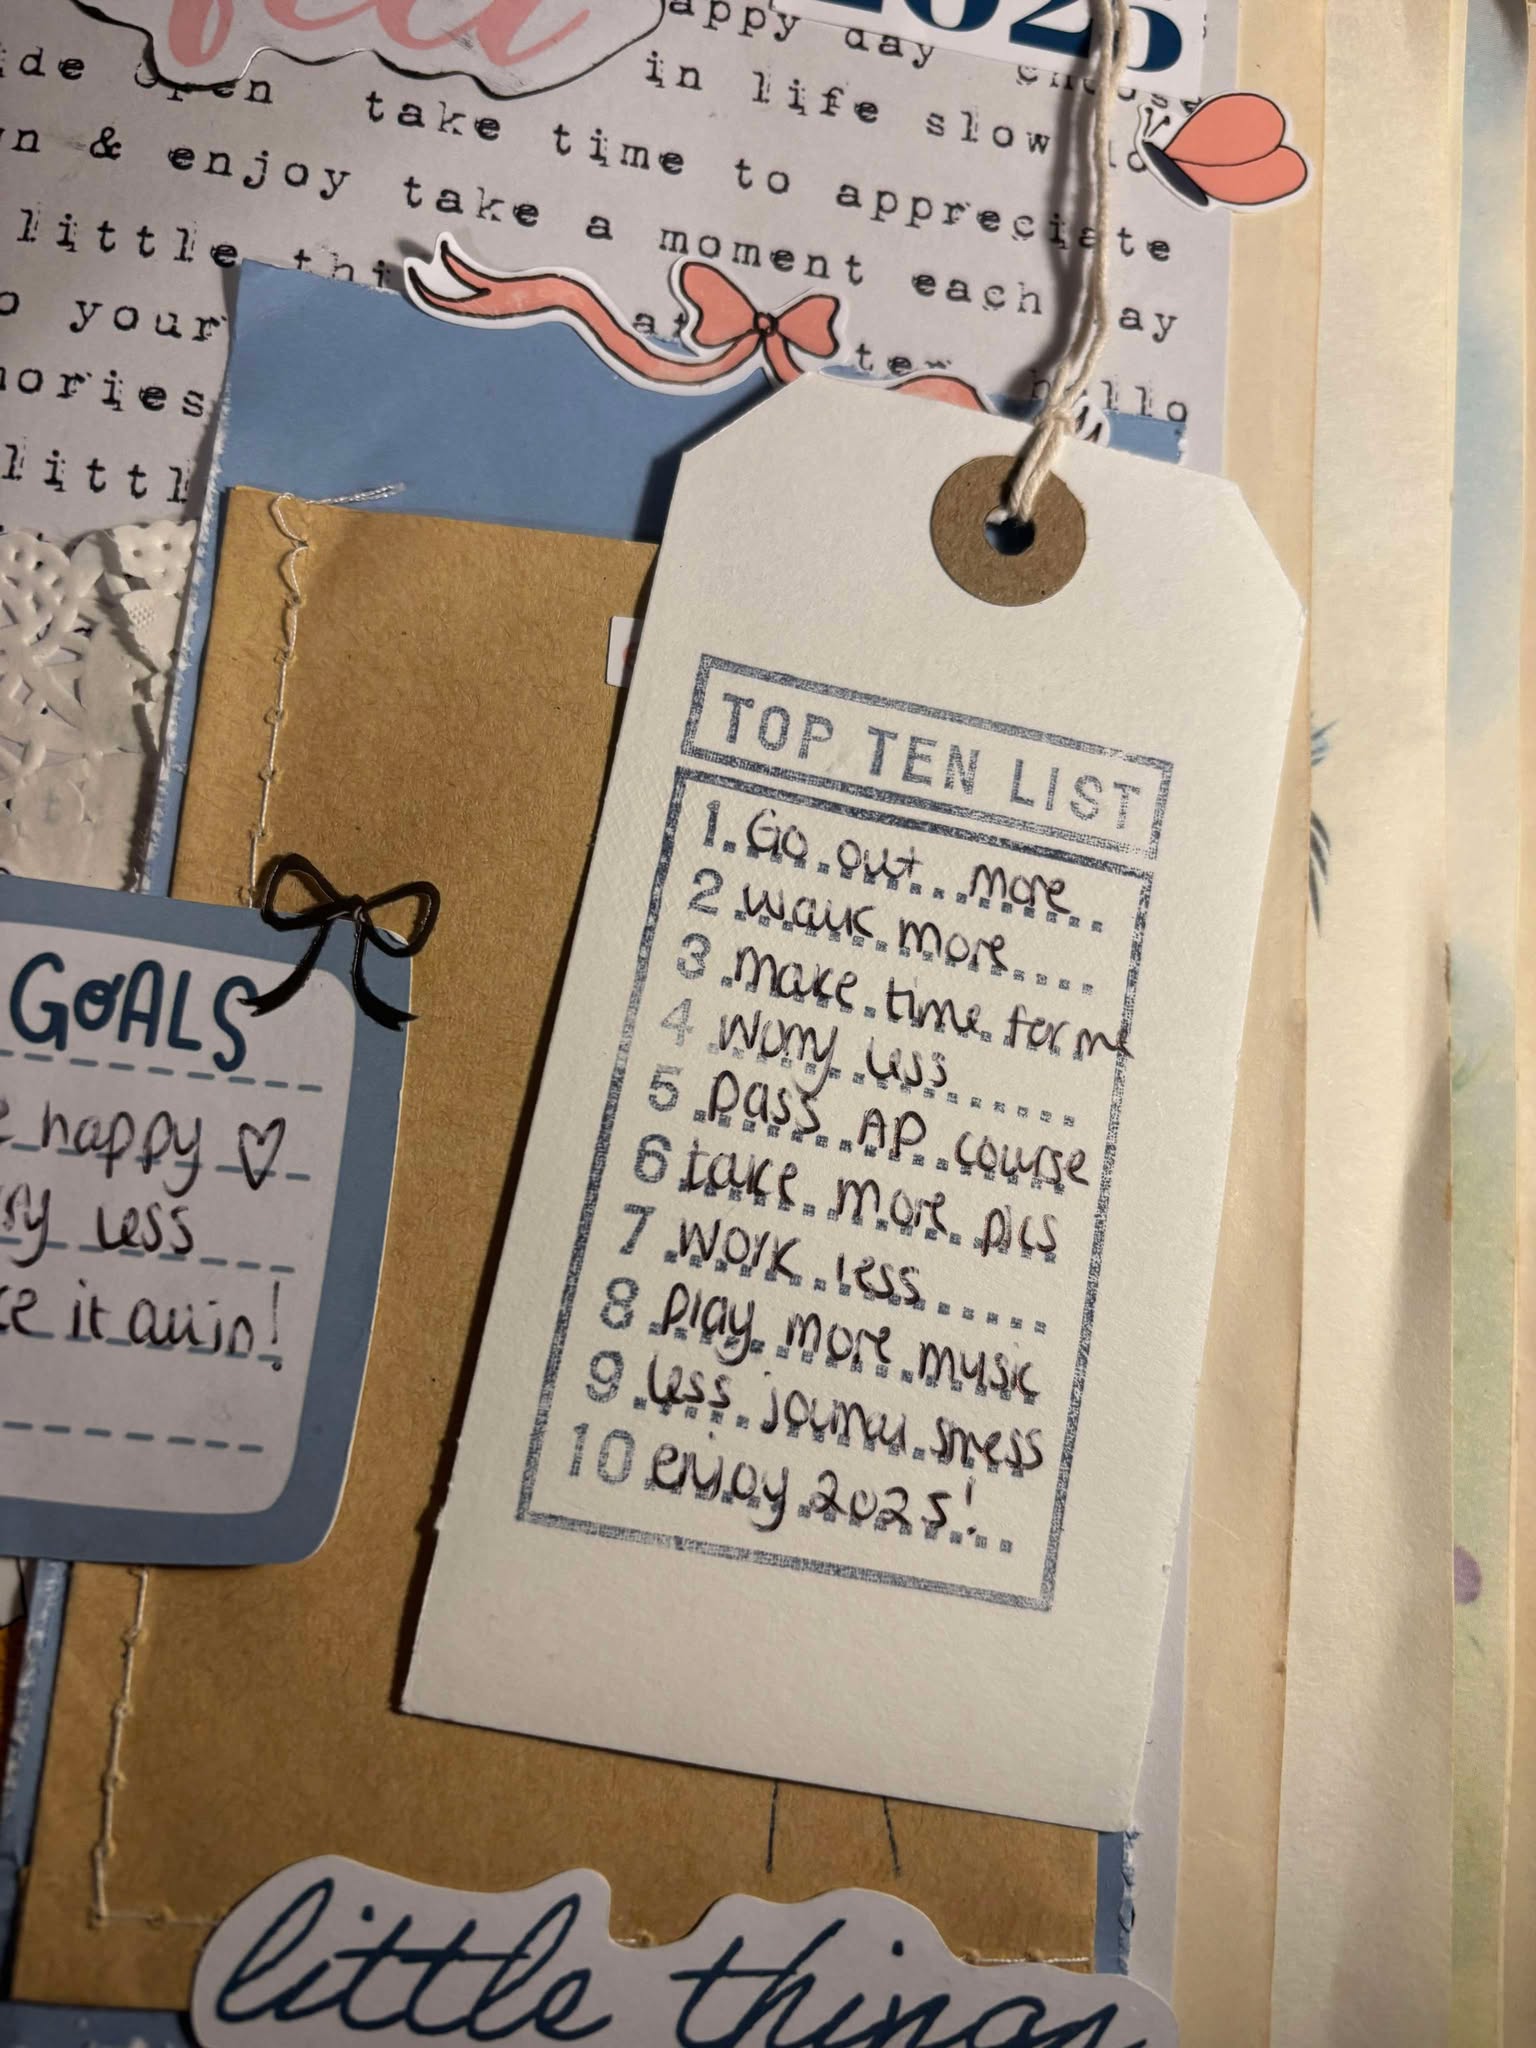 2025
appy day choose
de open take time in life slow do
n & enjoy take time to appreciate
little thi take a moment each ay
o your at ter hello
ories
littl
TOP TEN LIST
1. Go out more
2. walk more
3. make time for me
4 worry less
5. pass AP course
6 take more pics
7. work less
8. play more music
9. less journal stress
10 enjoy 2025!
GOALS
e happy ♡
ry less
ke it all in!
little things